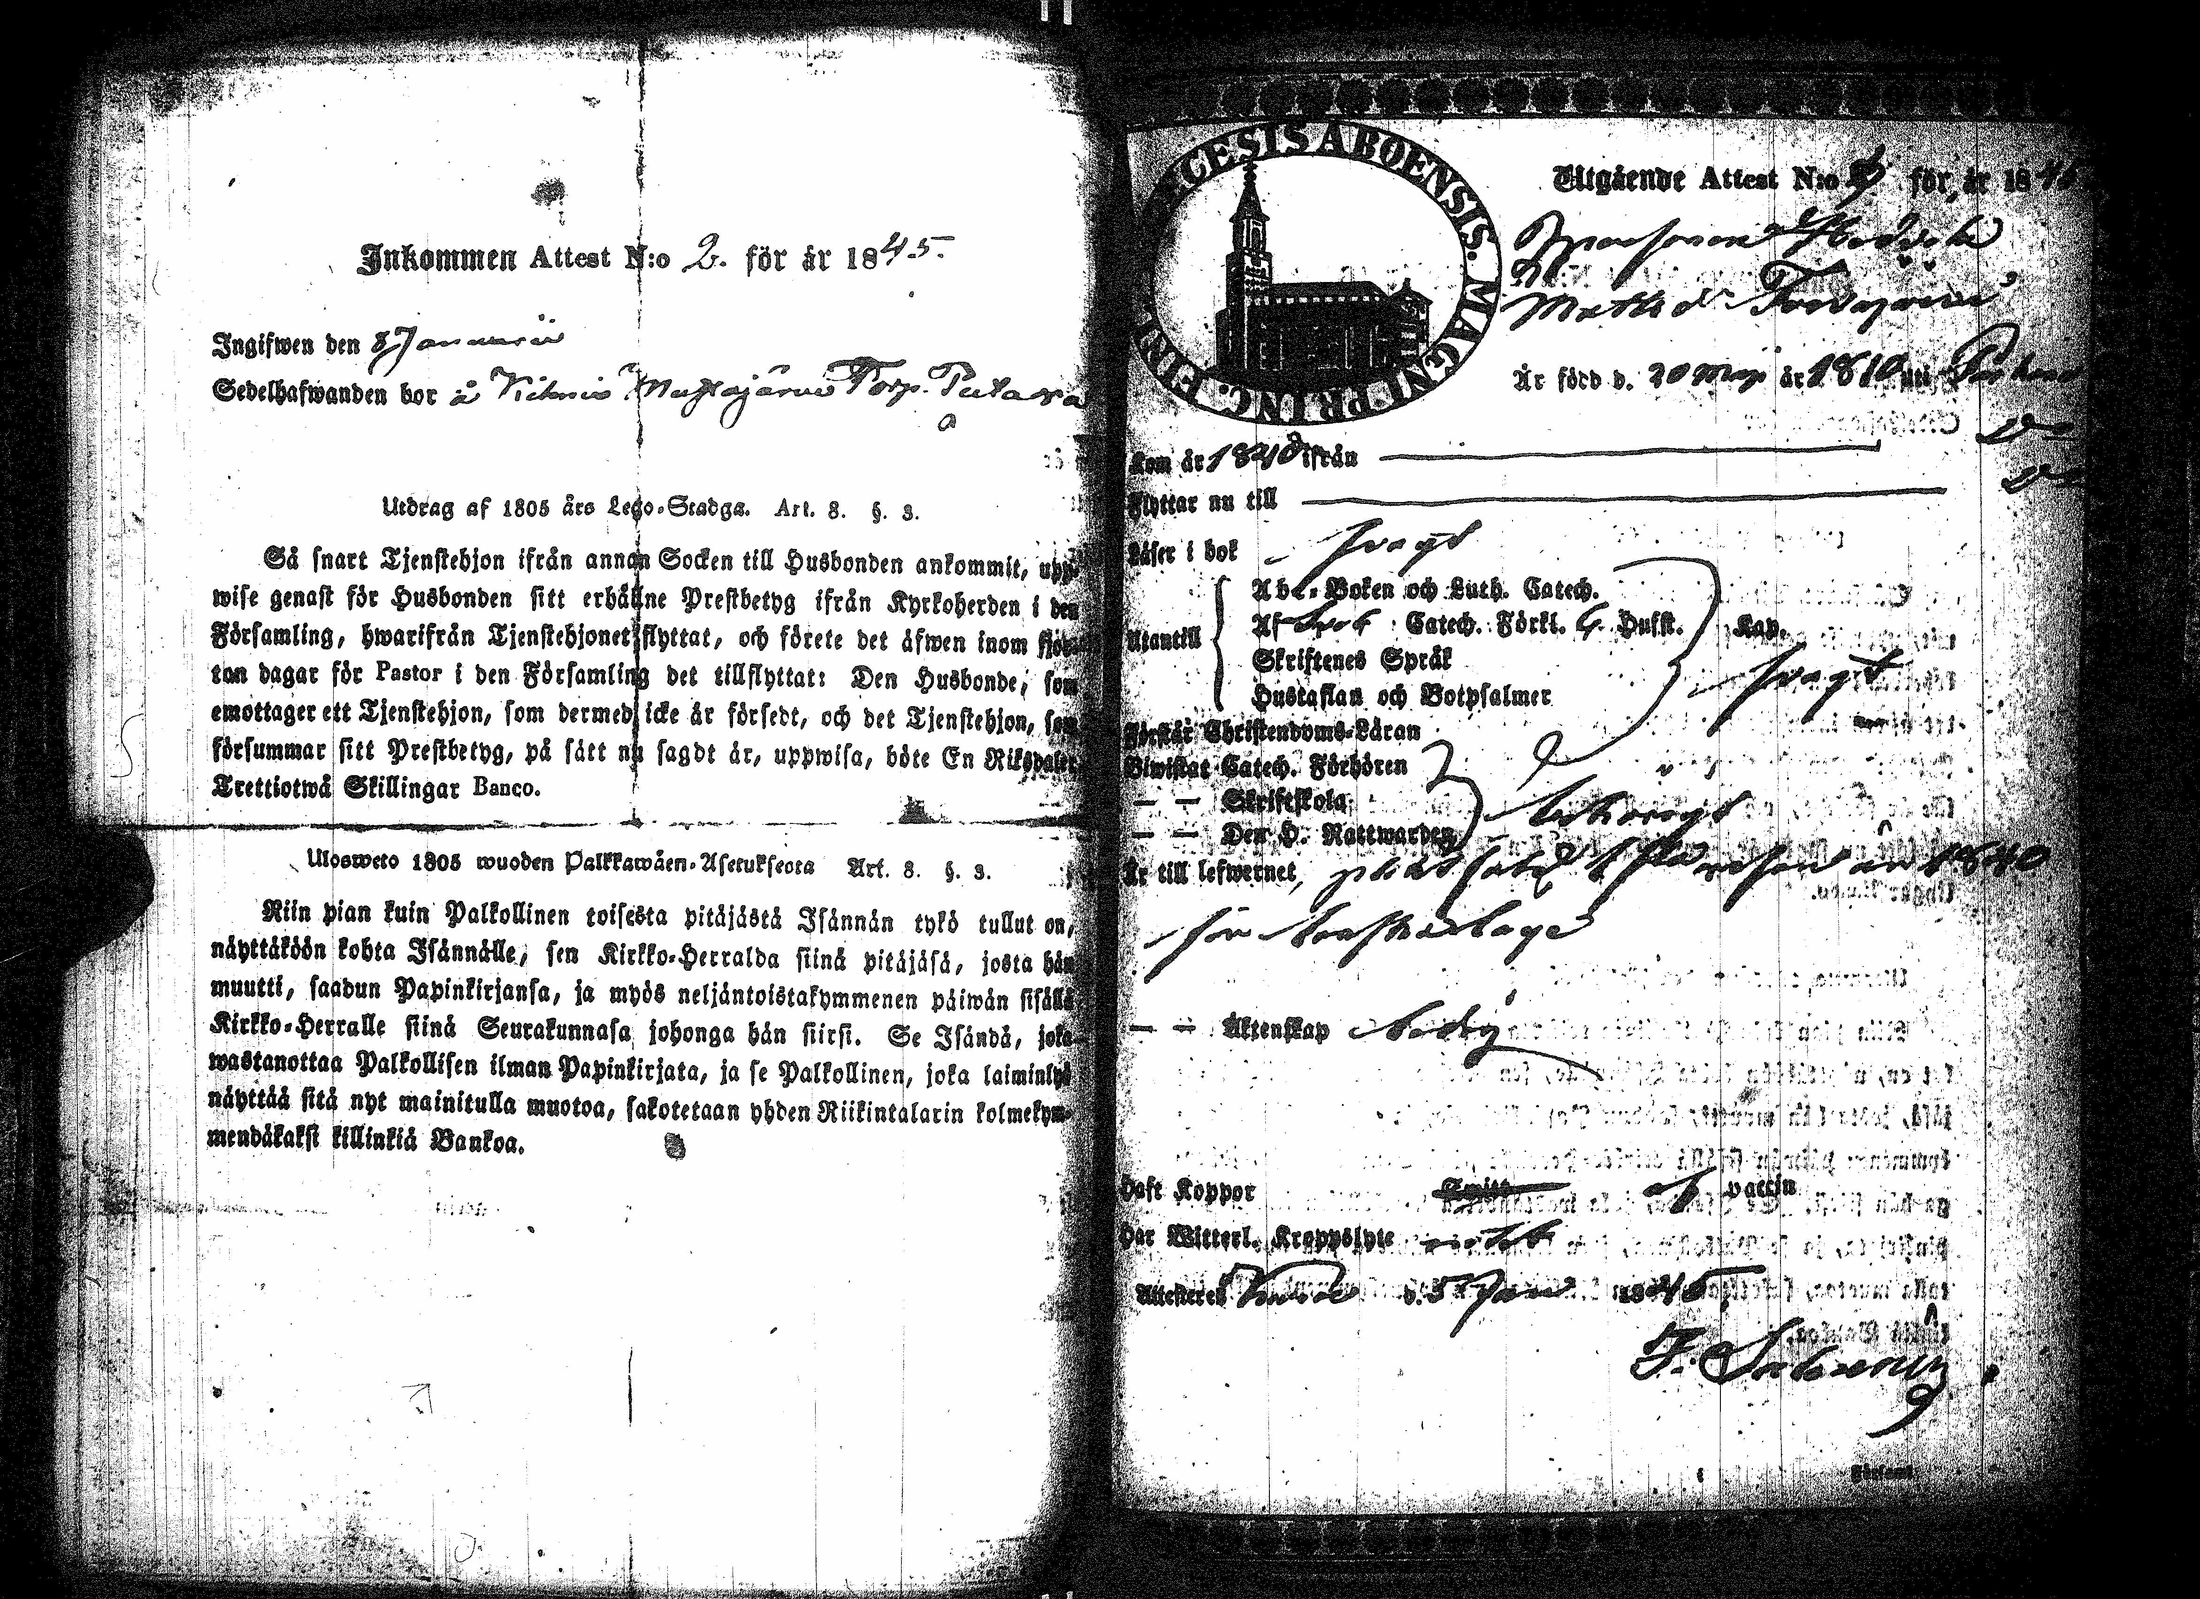 Inkommen Attest N:o 2. för år 1845.
Ingifwen den 8 Januarii
Sedelhafwanden bor å Torp.
Utdrag af 1805 års Lego-Stadga. Art. 8. §. 3.
Så snart Tjenstehjon ifrån annan Socken till Husbonden ankommit, upp-
wise genast för Husbonden sitt erhållne Prestbetyg ifrån Kyrkoherden i den
Församling, hwarifrån Tjenstehjonet flyttat, och förete det äfwen inom fjor-
ton dagar för Pastor i den Församling det tillflyttat: Den Husbonde, som
emottager ett Tjenstehjon, som dermed icke är försedt, och det Tjenstehjon, som
försummar sitt Prestbetyg, på sätt nu sagdt är, uppwisa, böte En Riksdaler
Trettiotwå Skillingar Banco.
Ulosweto 1805 wuoden Palkkawäen-Asetuksesta Art. 8. §. 3.
Niin pian kuin Palkollinen toisesta pitäjästä Isännän tykö tullut on,
näyttäköön kohta Isännälle, sen Kirkko-Herralda siinä pitäjäsä, josta hän
muutti, saadun Papinkirjansa, ja myös neljäntoistakymmenen päiwän sisällä
Kirkko-Herralle siinä Seurakunnasa johonga hän siirsi. Se Isändä, joka
wastanottaa Palkollisen ilman Papinkirjata, ja se Palkollinen, joka laiminlyö
näyttää sitä nyt mainitulla muotoa, sakotetaan yhden Riikintalarin kolmekym-
mendäkaksi killinkiä Bankoa.
DIOECESIS ABOENSIS. MAGNI PRINC. FINL.
Utgående Attest N:o för år 1845
Är född d. 20 Maji år 1810 uti
Kom år 1840 ifrån
Flyttar nu till
Läser i bok svagt
Utantill
Abc-Boken och Luth. Catech.
Af Sveb. Catech. Förkl. 6 Hufst. Kap.
Skriftenes Språk
Hustaflan och Botpsalmer svagt
Förstår Christendoms-Läran
Biwistat Catech. Förhören
— — Skriftskola
— — Den H. Nattwarden behörigt
Är till lefwernet, 1840
för
— — Äktenskap ledig
Haft Koppor af vaccin
Har Witterl. Kroppslyte
Attesteras d. 5 Jan 1845.
F.